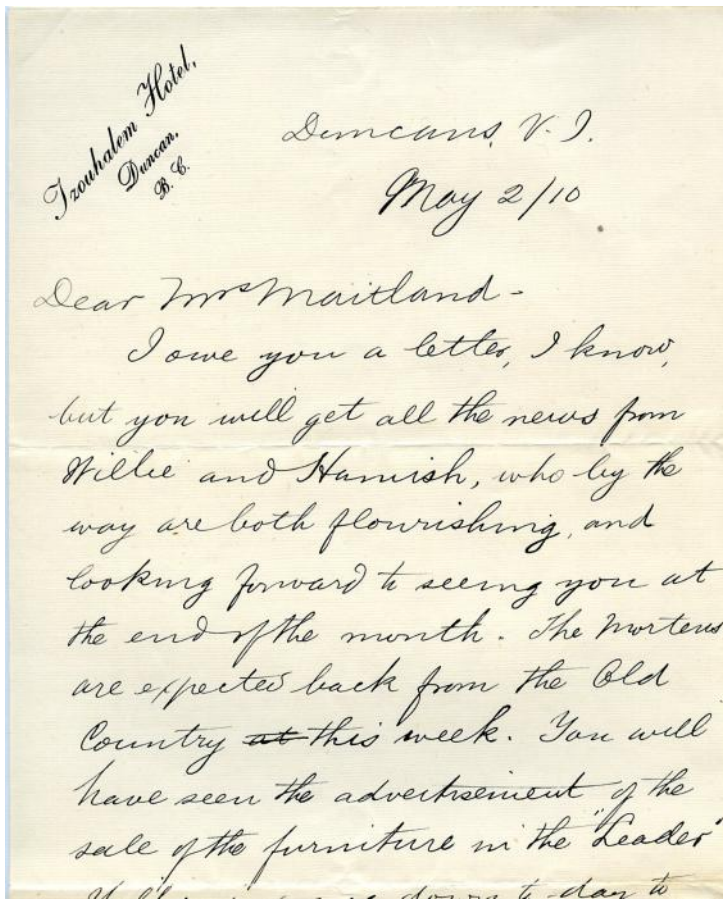 Tzouhalem Hotel,
Duncan,
B. C.
Duncans, V. I.
May 2/10
Dear Mrs Maitland -
I owe you a letter, I know,
but you will get all the news from
Willie and Hamish, who by the
way are both flourishing, and
looking forward to seeing you at
the end of the month. The Mortens
are expected back from the Old
Country at this week. You will
have seen the advertisement of the
sale of the furniture in the "Leader"
down to-day to